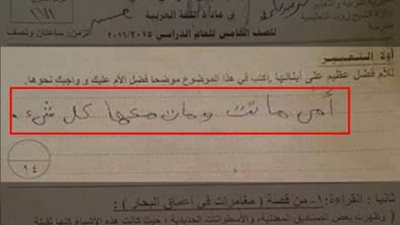 في مادة اللغة العربية
للصف الخامس للعام الدراسي ٢٠١٦/٢٠١٥
الزمن: ساعتان ونصف
أولا: التعبير
للأم فضل عظيم على أبنائها، اكتب في هذا الموضوع موضحا فضل الأم عليك و واجبك نحوها.
أمي ماتت ومات معها كل شيء.
١٤
ثانيا : القراءة: ١- من قصة ( مغامرات في أعماق البحار ) :
( وظهرت بعض الصناديق المعدنية، والأسطوانات الحديدية ، حيث كانت هذه الأشياء كلها ثقيلة